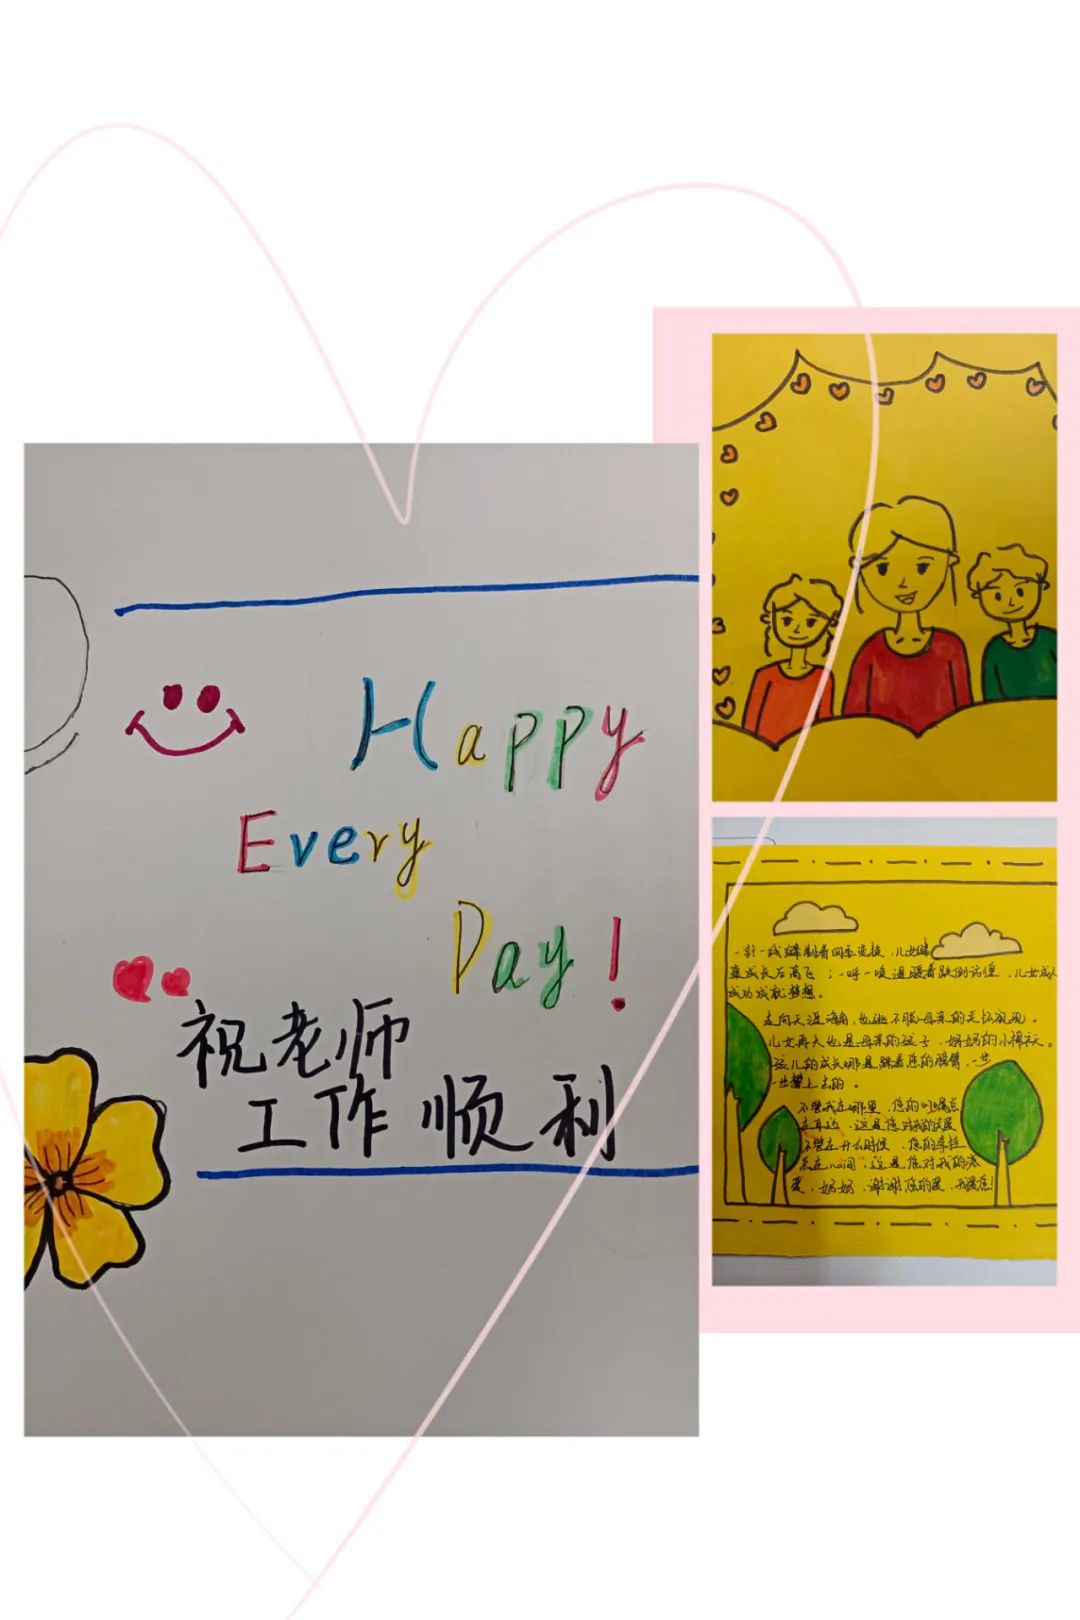 Happy
Every
Day!
祝老师
工作顺利
一针一线缝制着四季变换，儿女蜕
变成长后高飞；一呼一唤温暖着跌倒话锤，儿女成人
成功成就梦想。
走向天涯海角，也逃不脱母亲的关怀视观。
儿女再大也是母亲的孩子，妈妈的小棉袄。
孩儿的成长哪是踩着您的臂膀，一步
一步攀上去的。
不管我在哪里，您的叮嘱总
在耳边，这是您对我的关爱
不管在什么时候，您的牵挂
总在心间，这是您对我的慈
爱，妈妈，谢谢您的爱，我爱您！